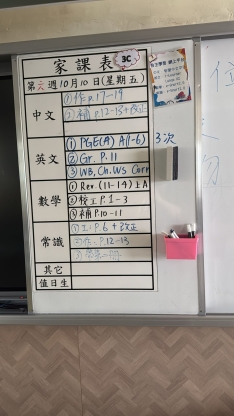 家課表
3C
第六週10月10日(星期五)
中文
①作p.17-19
②補p.12-13+改正
英文
① PGE(A) A(1-6) 3次
② Gr. P.11
③ WB, Ch. Ws Corr
數學
① Rev (11-14) 上A
② 校工 P.1-3
③ 補 P.10-11
常識
①工. p.6+改正
p.12-13
其它
值日生